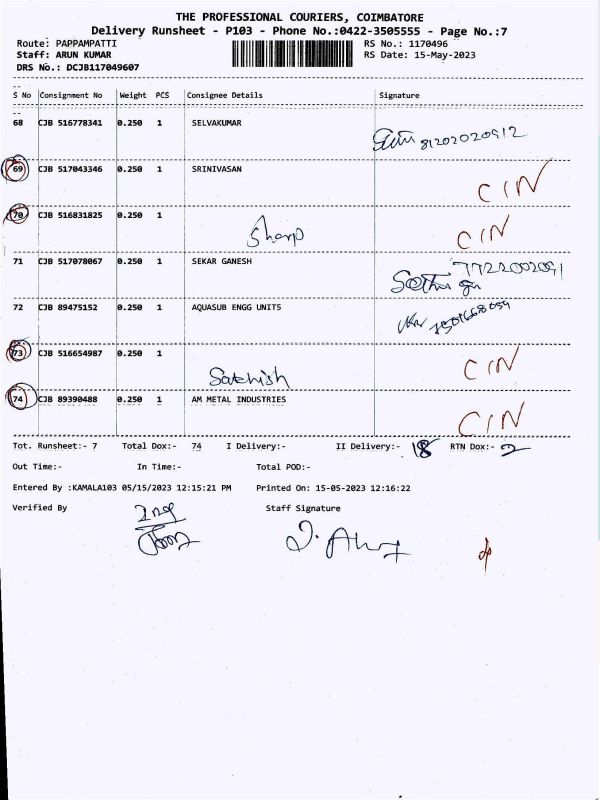 THE PROFESSIONAL COURIERS, COIMBATORE
Delivery Runsheet - P103 - Phone No.:0422-3505555 - Page No.:7
Route: PAPPAMPATTI RS No.: 1170496
Staff: ARUN KUMAR RS Date: 15-May-2023
DRS No.: DCJB117049607
S No Consignment No Weight PCS Consignee Details Signature
68 CJB 516778341 0.250 1 SELVAKUMAR
81202020912
69 CJB 517043346 0.250 1 SRINIVASAN
CIN
70 CJB 516831825 0.250 1
Sharp CIN
71 CJB 517078067 0.250 1 SEKAR GANESH 7722002091
72 CJB 89475152 0.250 1 AQUASUB ENGG UNITS
73 CJB 516654987 0.250 1 CIN
Sathish
74 CJB 89390488 0.250 1 AM METAL INDUSTRIES
CIN
Tot. Runsheet:- 7 Total Dox:- 74 I Delivery:- II Delivery:- 18 RTN Dox:- 2
Out Time:- In Time:- Total POD:-
Entered By :KAMALA103 05/15/2023 12:15:21 PM Printed On: 15-05-2023 12:16:22
Verified By Staff Signature